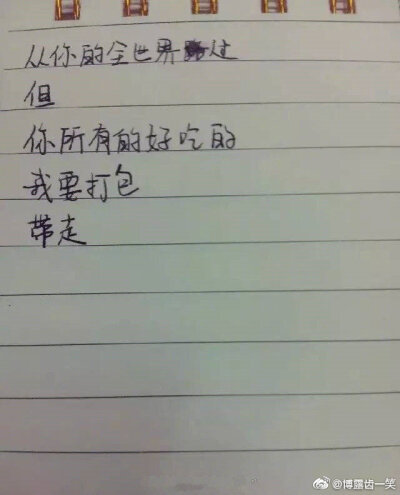 从你的全世界路过
但
你所有的好吃的
我要打包
带走
@博露齿一笑